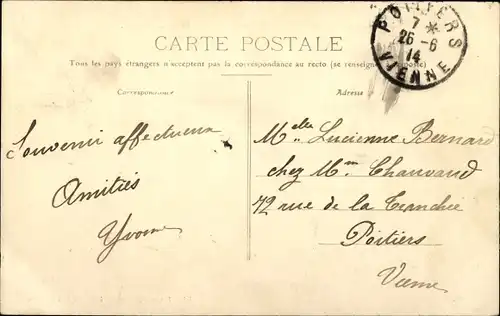 POITIERS
7 *
26-6
14
VIENNE
CARTE POSTALE
Tous les pays étrangers n'acceptent pas la correspondance au recto (se renseigner à la poste)
Correspondance
Adresse
Souvenir affectueux
Amitiés
Yvonne
Melle Lucienne Bernard
chez Mme Chauvaud
72 rue de la Tranchée
Poitiers
Vienne